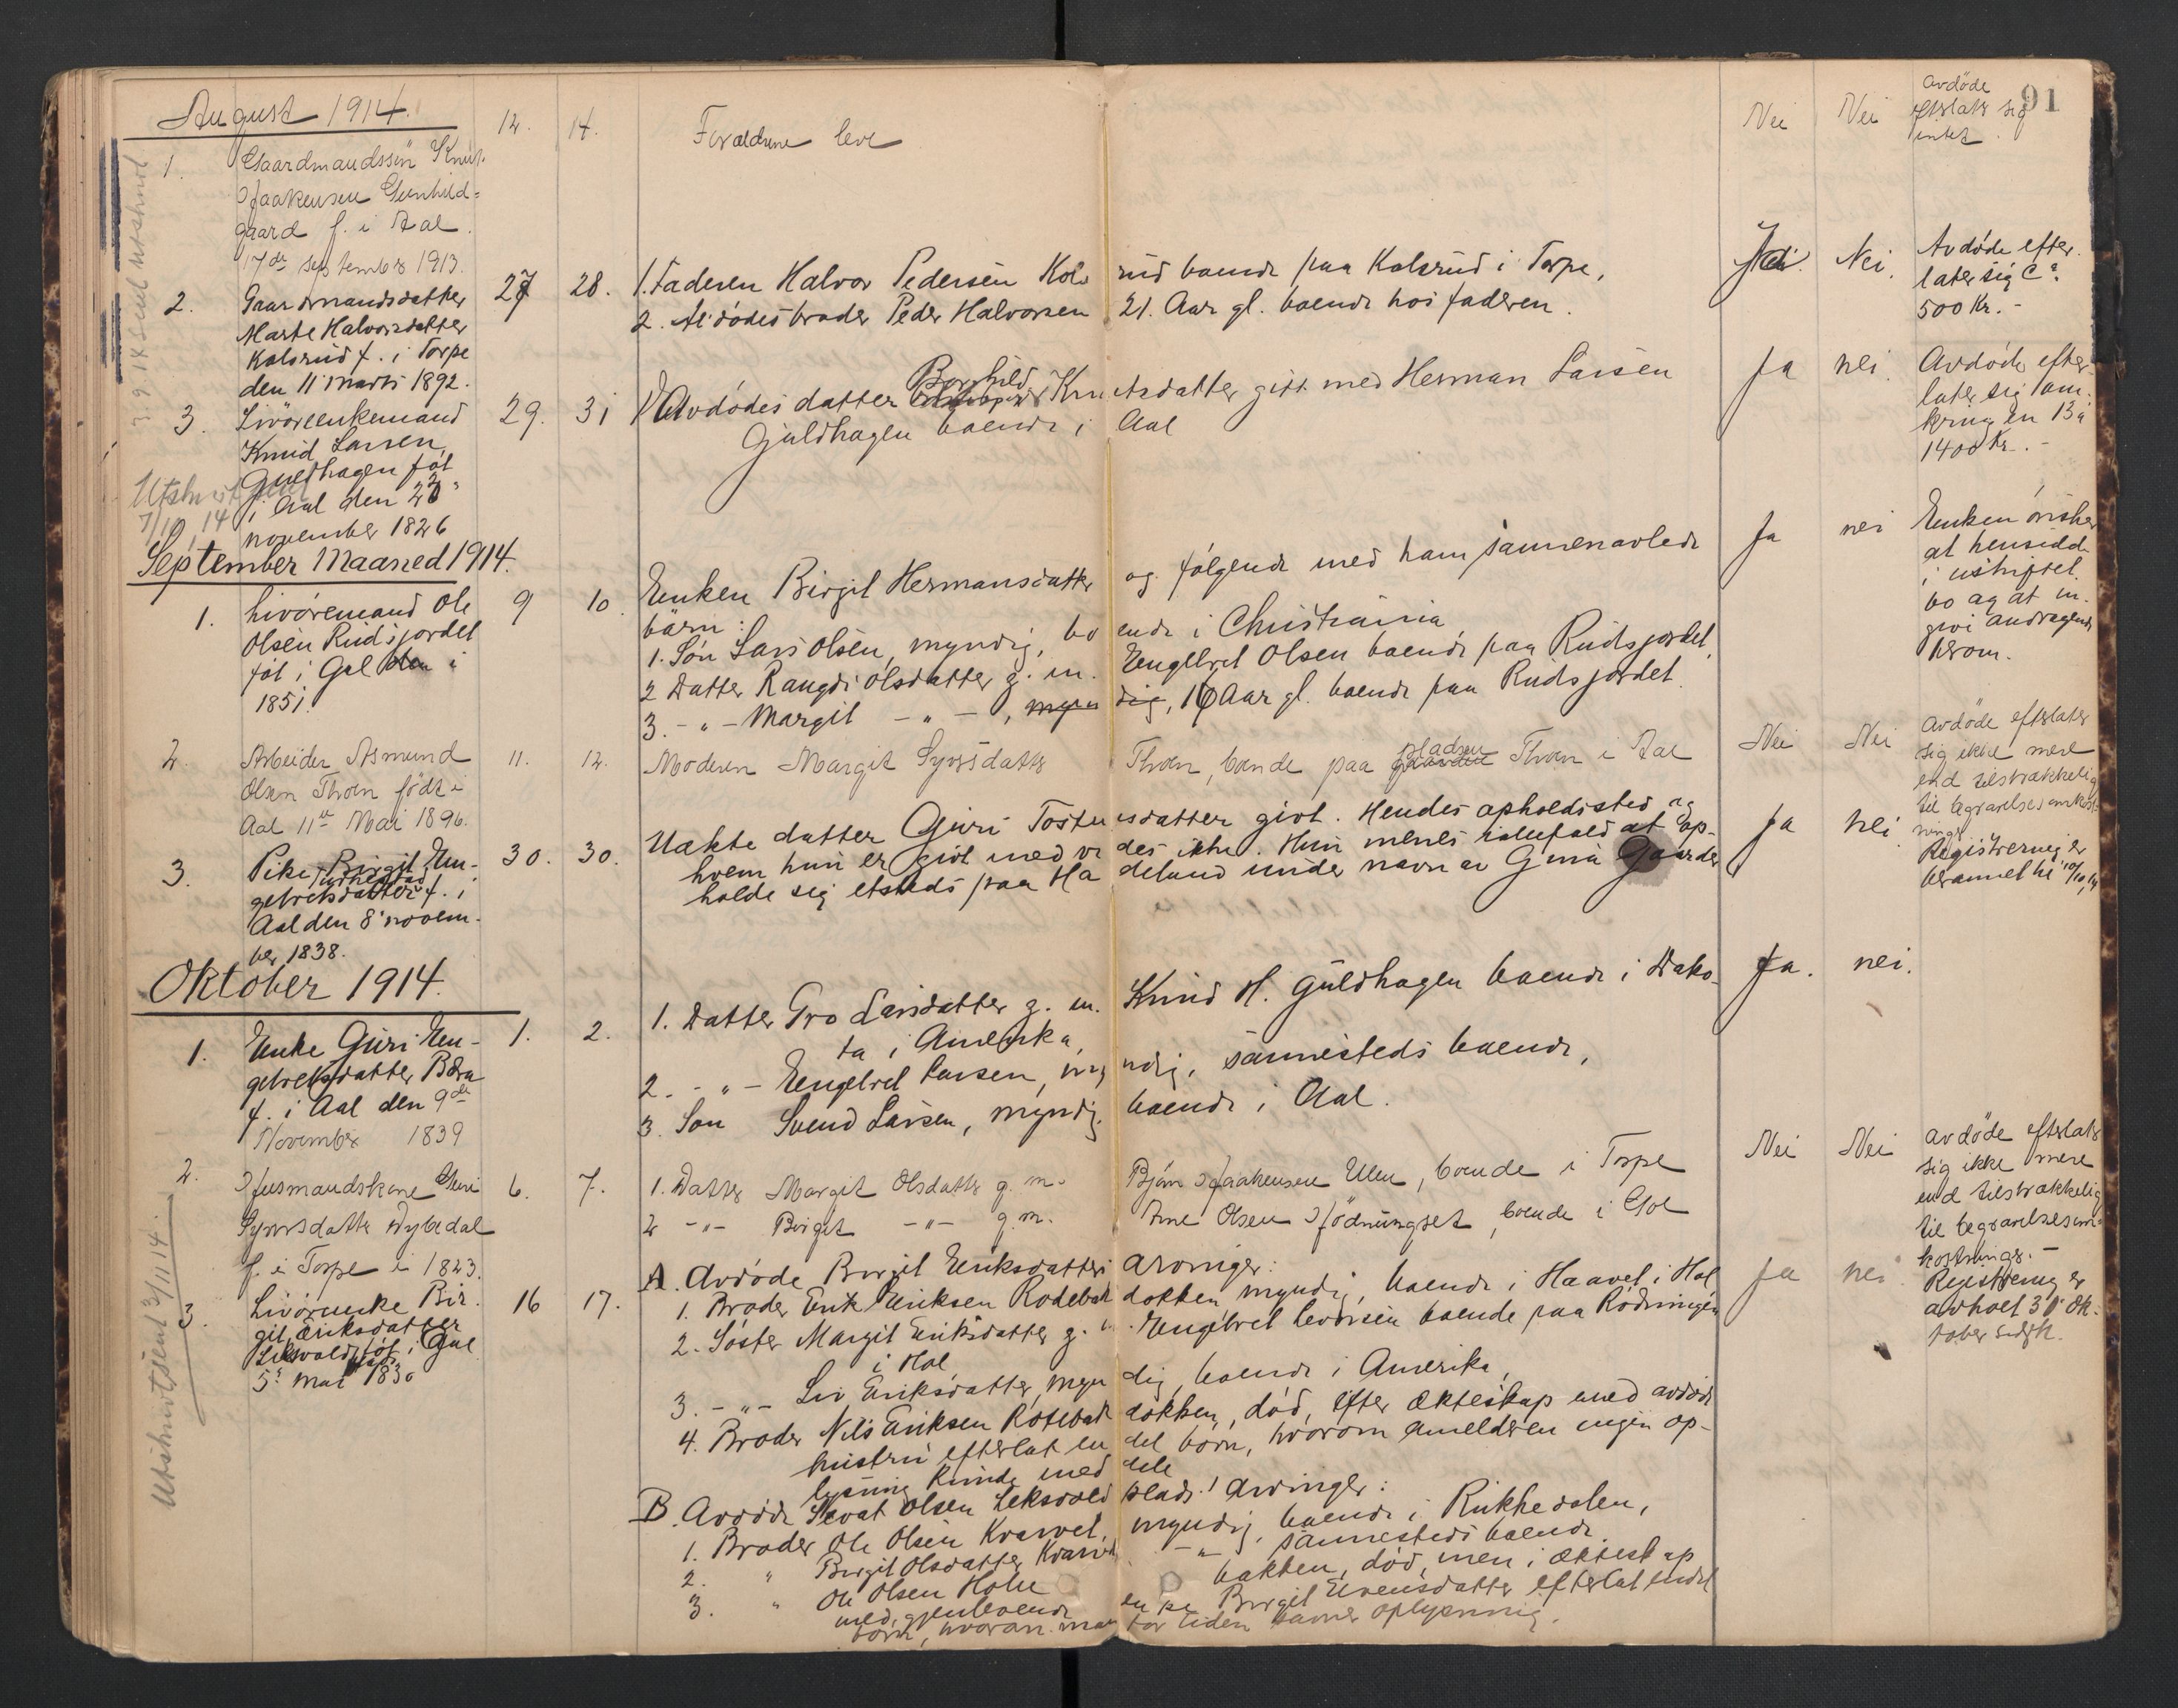 91
August 1914.
1. Gaardmandssön Knut
Isaakensen Gunhild-
gaard f. i Aal
17de september 1913.
12. 14. Forældrene leve
Nei Nei avdöde
efterlate sig
intet.
2. Gaardmandsdatter
Marte Halvorsdatter
Kolsrud f. i Torpe
den 11 marts 1892.
27 28. 1. Faderen Halvor Pedersen Kolsrud boende paa Kolsrud i Torpe,
2. Avdödes broder Peder Halvorsen 21. Aar gl. boende hos faderen.
Nei. Avdöde efter-
later sig Ca.
500 Kr. -
3.
Knud Larsen
Guldhagen föt
i Aal den 23
november 1826
29. 31 1) Avdödes datter Borghild Knutsdatter gift med Herman Larsen
Guldhagen boende i Aal
Ja nei. Avdöde efter-
later sig om-
kring en 13 a
1400 Kr. -
7/11 14
September Maaned 1914.
1. Livöremand Ole
Olsen Rudsjordet
föt i Gol i
1851.
9 10. Enken Birgit Hermansdatter og følgende med ham sammenavlede
børn:
1. Sön Lars Olsen, myndig, boende i Christiania
2 Datter Rangdi Olsdatter g. m. Engebret Olsen boende paa Rudsjordet,
3. - " - Margit - " - , myndig, 16 Aar gl. boende paa Rudsjordet.
Ja nei Enken ønsker
at hensidde
i uskiftet
bo og at in-
givi andragende
herom.
2. Arbeider Asmund
Olsen Thoen født i
Aal 11te Mai 1896.
11. 12. Moderen Margit Syversdatter Thoen, boende paa pladsen Thoen i Aal
Nei Nei avdöde efterlater
sig ikke mere
end tilstrækkelig
til begravelsesomkost-
ninger
3. Pike Birgit En-
gebretsdatter f. i
Aal den 8 novem-
ber 1838.
30. 30. Uækte datter Guri Tostensdatter givt. Hendes opholdssted og
hvem hun er givt med vides ikke. Hun menes ialfald at op-
holde sig etsteds paa Hadeland under navn av Guri Gaarder
Ja nei Registrering er
berammet til 10/10 14
Oktober 1914.
1. Enke Guri En-
gebretsdatter Børa
f. i Aal den 9de
November 1839
1. 2. 1. Datter Gro Larsdatter g. m. Knud H. Guldhagen boende i Dako-
ta i Amerika,
2. - " - Engebret Larsen, myndig, sammesteds boende,
3. Sön Svend Larsen, myndig boende i Aal.
Ja. nei.
2. Husmandskone Guri
Syversdatter Dybedal
f. i Torpe i 1823.
6. 7. 1. Datter Margit Olsdatter g. m. Bjørn Isaakensen Ulen, boende i Torpe
2 - " - Birgit - " - g. m. Arne Olsen Sjödnungset, boende i Gol
Nei Nei avdöde efterlater
sig ikke mere
end tilstrækkelig
til begravelsesom-
kostninger. -
3. Livörenke Bir-
git Eriksdatter
Leksvold föt i Gol
5. mai 1830
Utskrivt sent 3/11 14.
16 17. A. Avdöde Birgit Eriksdatters arvinger:
1. Broder Erik Eriksen Rotebakdokken myndig, boende i Haavet i Hol
2. Söster Margit Eriksdatter g. m. Engebret Levorsen boende paa Rödningen
i Hol
3. - " - Liv Eriksdatter, myndig, boende i Amerika,
4. Broder Nils Eriksen Rotebakdokken, död, efter ækteskap med avdöde
hustru efterlat en del børn, hvorom anmelderen ingen op-
lysning kunde meddele
B. Avdöde Sevat Olsen Leksvold plads. arvinger:
1. Broder Ole Olsen Kvarvet, myndig, boende i Rukkedalen,
2. " Birgit Olsdatter Kvarvet - " - sammesteds boende.
3. " Ole Olsen Holebakken, död, men i ækteskap
med gjenlevende enke Birgit Evensdatter efterlat endel
børn, hvoran man for tiden savner oplysning.
Ja nei Registrering er
avholt 31 Ok-
tober